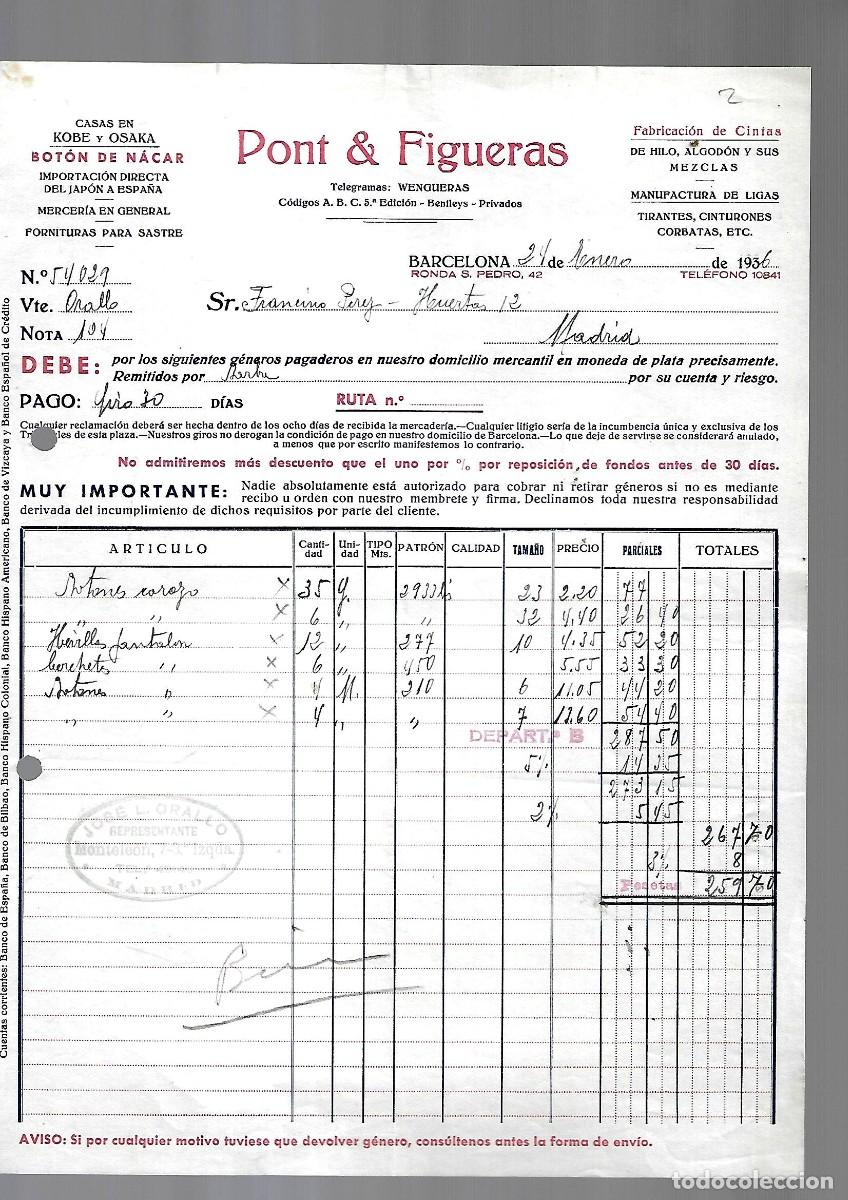 2
CASAS EN
KOBE Y OSAKA
BOTÓN DE NÁCAR
IMPORTACIÓN DIRECTA
DEL JAPÓN A ESPAÑA
MERCERÍA EN GENERAL
FORNITURAS PARA SASTRE
Pont & Figueras
Telegramas: WENGUERAS
Códigos A. B. C. 5.ª Edición - Bentleys - Privados
Fabricación de Cintas
DE HILO, ALGODÓN Y SUS
MEZCLAS
MANUFACTURA DE LIGAS
TIRANTES, CINTURONES
CORBATAS, ETC.
BARCELONA 24 de Enero de 1936
RONDA S. PEDRO, 42 TELÉFONO 10841
N.º 54029
Vte. Orallo Sr. Francisco Perez - Huertas 12
NOTA 194 Madrid
DEBE: por los siguientes géneros pagaderos en nuestro domicilio mercantil en moneda de plata precisamente.
Remitidos por por su cuenta y riesgo.
PAGO: Giro 30 DÍAS RUTA n.º
Cualquier reclamación deberá ser hecha dentro de los ocho días de recibida la mercadería.—Cualquier litigio sería de la incumbencia única y exclusiva de los
Tr les de esta plaza.—Nuestros giros no derogan la condición de pago en nuestro domicilio de Barcelona.—Lo que deje de servirse se considerará anulado,
a menos que por escrito manifestemos lo contrario.
No admitiremos más descuento que el uno por % por reposición de fondos antes de 30 días.
MUY IMPORTANTE: Nadie absolutamente está autorizado para cobrar ni retirar géneros si no es mediante
recibo u orden con nuestro membrete y firma. Declinamos toda nuestra responsabilidad
derivada del incumplimiento de dichos requisitos por parte del cliente.
ARTICULO Canti-dad Uni-dad TIPO Mts. PATRÓN CALIDAD TAMAÑO PRECIO PARCIALES TOTALES
Botones corozo × 35 g. 2933 23 2.20 77
" " × 6 " " 32 4.40 26 40
Hevillas pantalon × 12 " 277 10 4.35 52 20
Corchetes " × 6 " 450 5.55 33 30
Botones " × 4 M. 210 6 11.05 44 20
" " × 4 " " 7 13.60 54 40
DEPART.º B 287 50
5% 14 35
273 15
2% 5 45
267 70
3% 8
Pesetas 259 70
JOSE L. ORALLO
REPRESENTANTE
Monteleón, 7-3.º Izqda.
MADRID
AVISO: Si por cualquier motivo tuviese que devolver género, consúltenos antes la forma de envío.
Cuentas corrientes: Banco de España, Banco de Bilbao, Banco Hispano Colonial, Banco Hispano Americano, Banco de Vizcaya y Banco Español de Crédito
todocoleccion